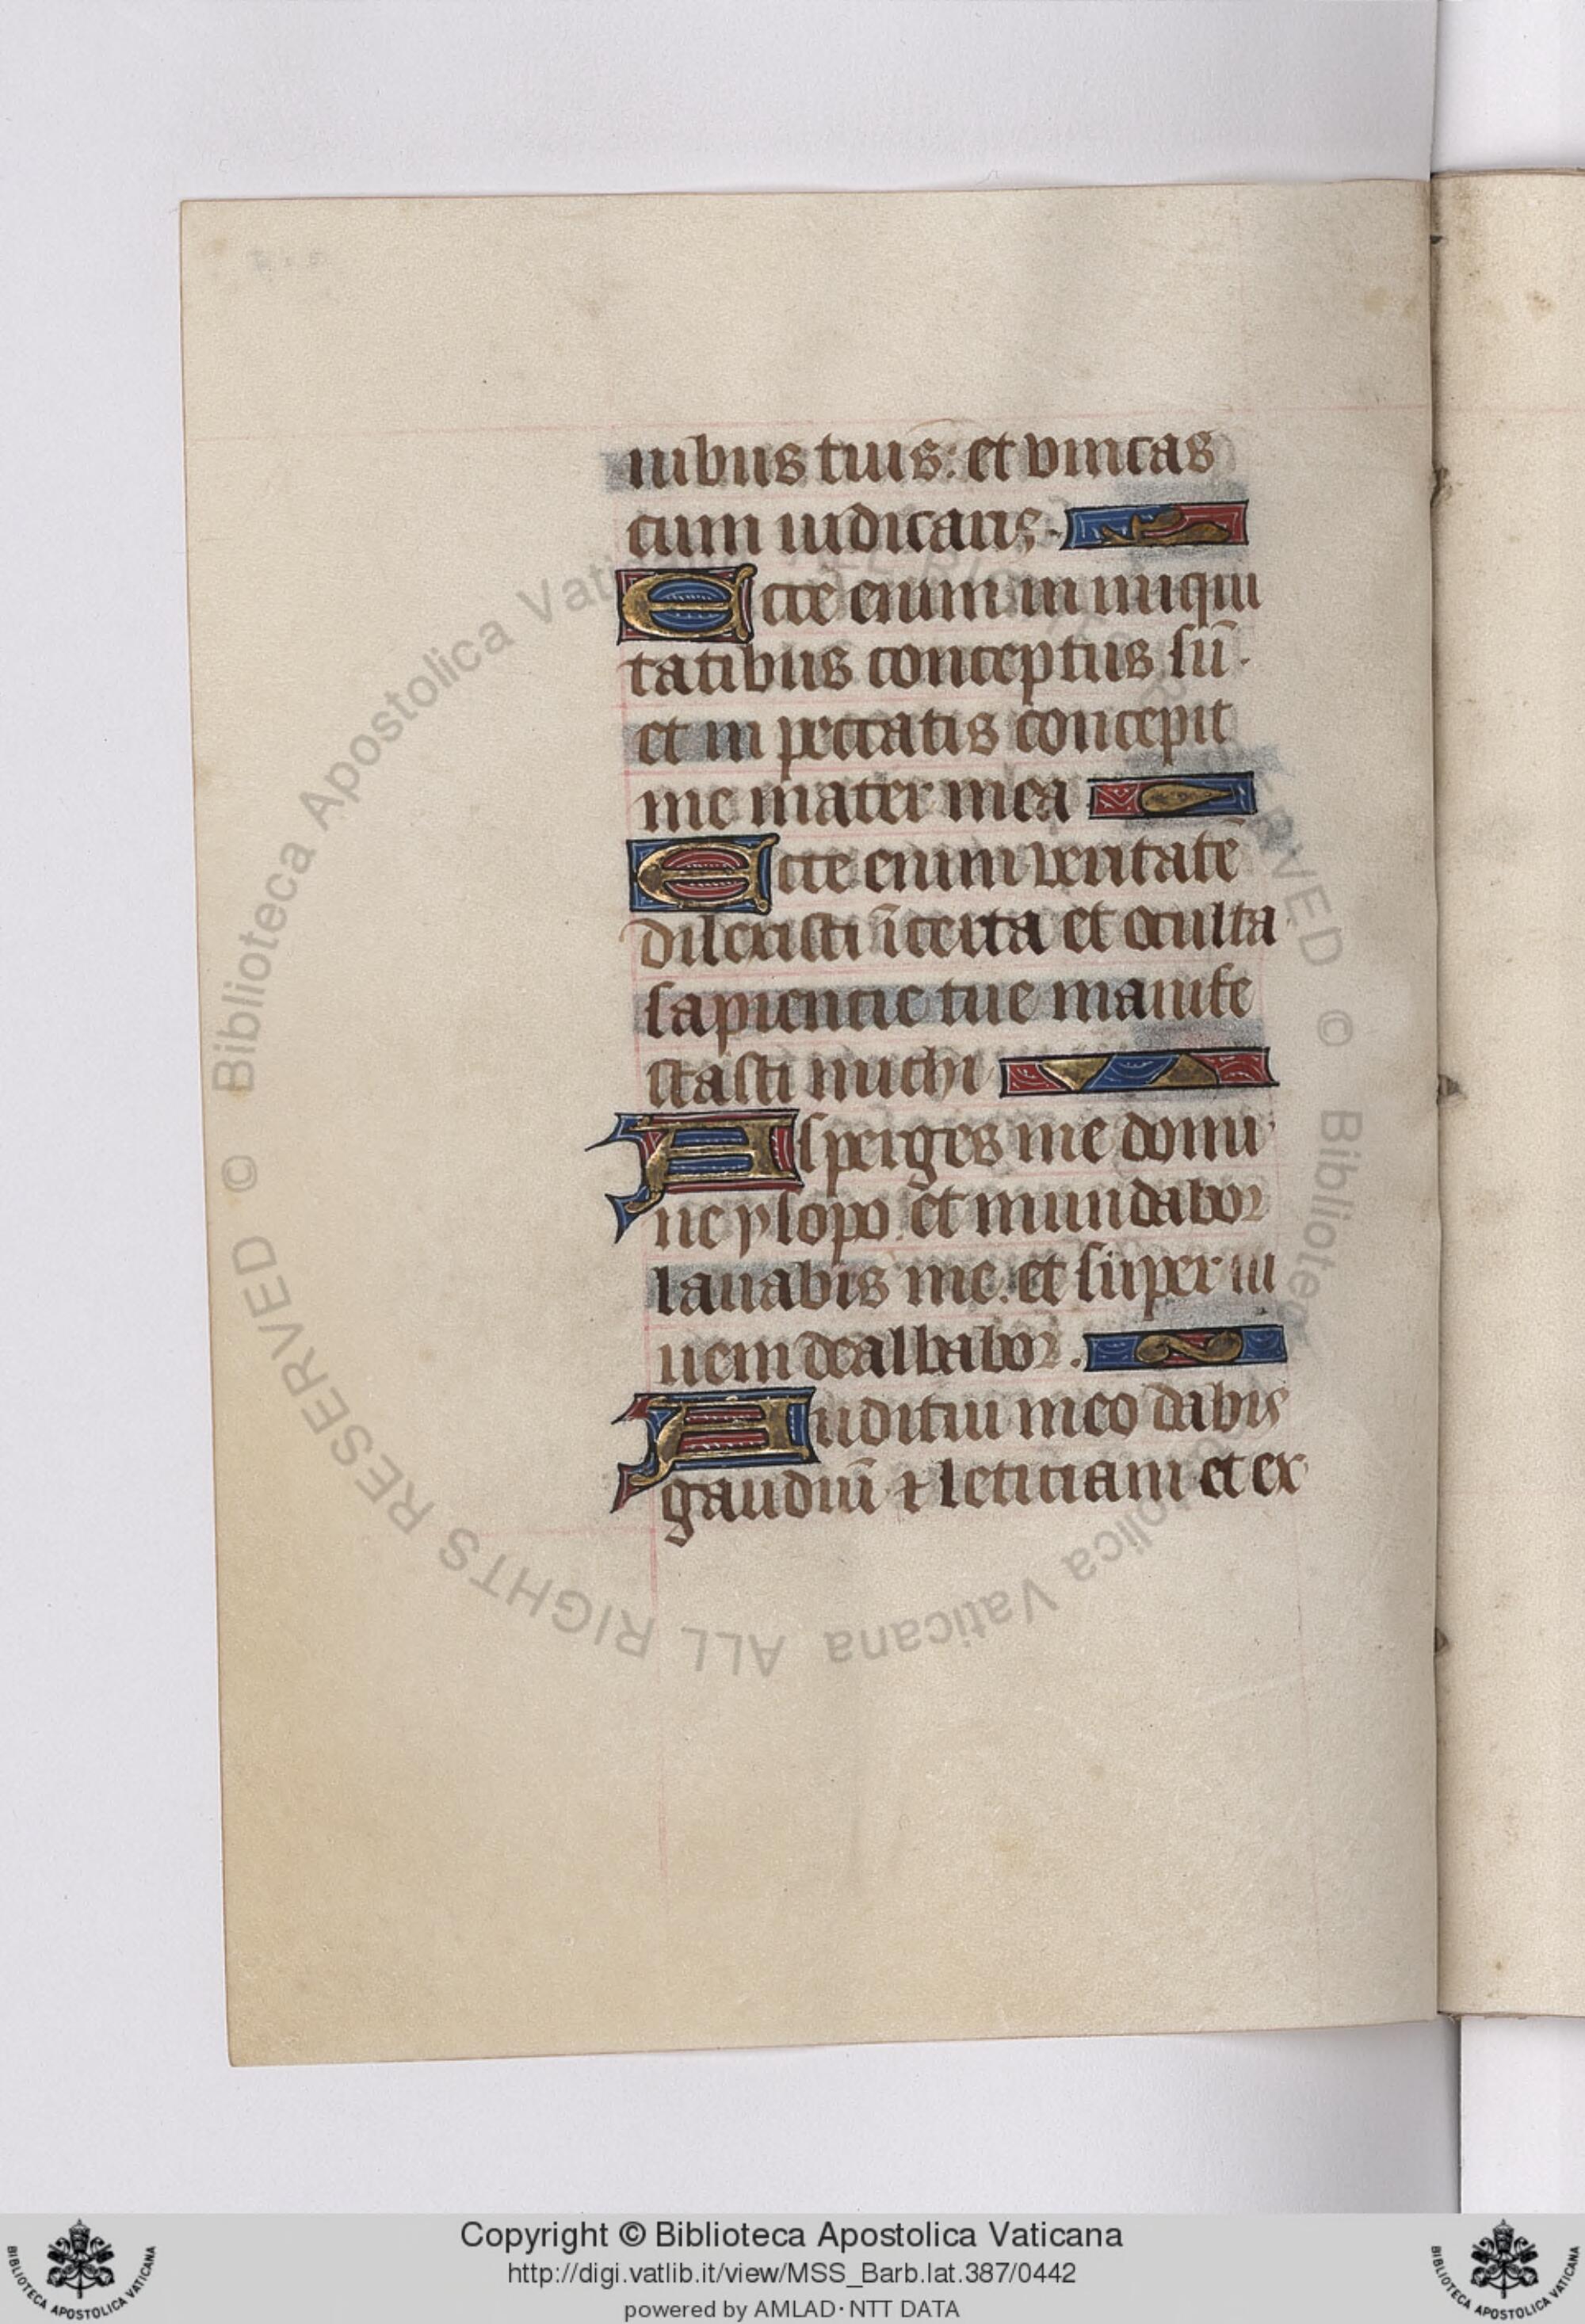 nibus tuis: et vincas
cum iudicaris.
Ecce enim in iniqui
tatibus conceptus sū.
et in peccatis concepit
me mater mea
Ecce enim veritatē
dilexisti īcerta et oculta
sapiencie tue manife
stasti michi
Asperges me domi
ne ysopo et mundabor
lavabis me. et super ni
vem dealbabor.
Auditui meo dabis
gaudiū ⁊ leticiam et ex
© Biblioteca Apostolica Vaticana ALL RIGHTS RESERVED © Biblioteca Apostolica Vaticana ALL RIGHTS RESERVED
Copyright © Biblioteca Apostolica Vaticana
http://digi.vatlib.it/view/MSS_Barb.lat.387/0442
powered by AMLAD·NTT DATA
BIBLIOTECA APOSTOLICA VATICANA
BIBLIOTECA APOSTOLICA VATICANA